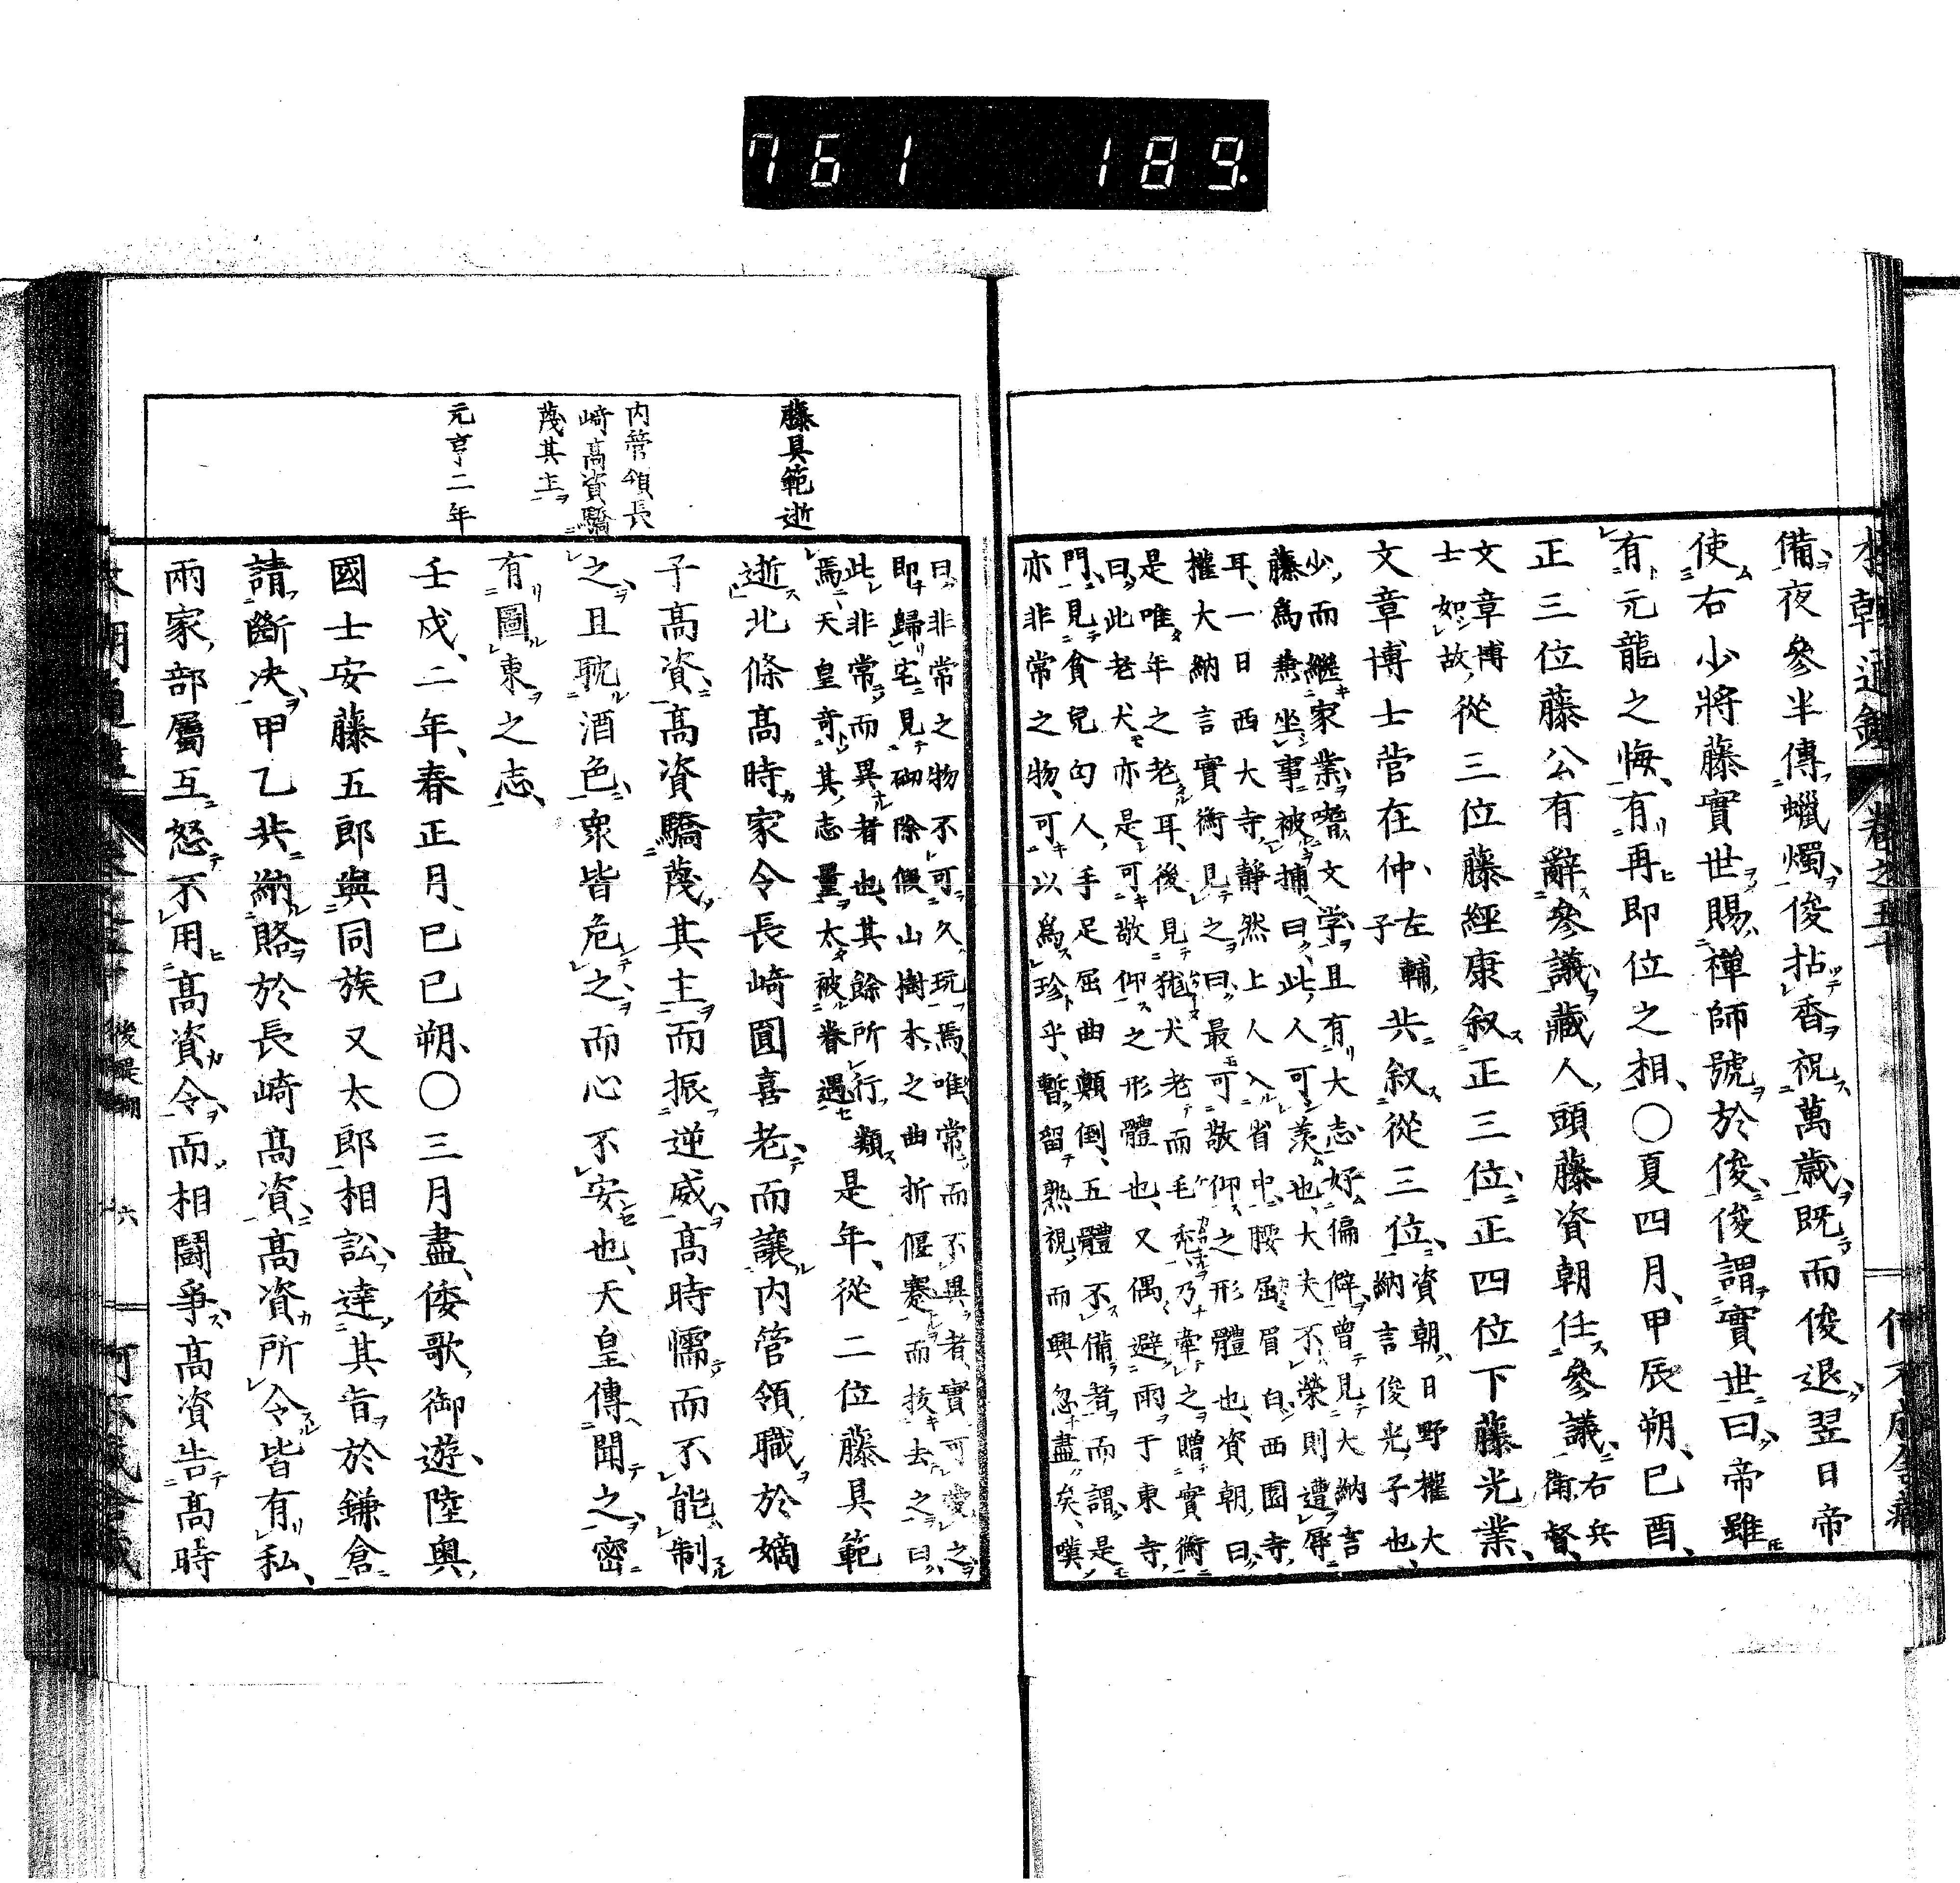 761 189.
本朝通鑑 卷之五十
備夜參半傳蠟燭俊拈香祝萬歲既而俊退翌日帝
使右少將藤實世賜禪師號於俊俊謂實世曰帝雖
有元龍之悔有再即位之相〇夏四月甲辰朔己酉
正三位藤公有辭參議藏人頭藤資朝任參議右兵
衛督
文章博
士如故從三位藤經康叙正三位正四位下藤光業
文章博士菅在仲左輔
子共叙從三位資朝日野權大
納言俊光子也
少而繼家業嗜文学且有大志好偏僻曾見大納言
藤為兼坐事被捕曰此人可羨也大夫不榮則遭辱
耳一日西大寺靜然上人入省中腰屈眉白西園寺
權大納言實衡見之曰最可敬仰之形體也資朝曰
是唯年之老耳後見尨犬老而毛禿乃牽之贈實衡
曰此老犬亦是可敬仰之形體也又偶避雨于東寺
門見貧兒匃人手足屈曲顛倒五體不備者而謂是
亦非常之物可以為珍乎暫留熟視而興忽盡矣嘆
曰非常之物不可久玩焉唯常而不異者實可愛之
即歸宅見砌除假山樹木之曲折偃蹇而拔去之曰
此非常而異者也其餘所行類
焉天皇奇其志量太被眷遇是年從二位藤具範
逝北條高時家令長崎圓喜老而讓内管領職於嫡
子高資高資驕蔑其主而振逆威高時懦而不能制
之且耽酒色衆皆危之而心不安也天皇傳聞之密
有圖東之志
壬戌二年春正月己巳朔〇三月盡倭歌御遊陸奥
國士安藤五郎與同族又太郎相訟達其旨於鎌倉
請斷决甲乙共納賂於長崎高資高資所令皆有私
兩家部屬互怒不用高資令而相鬪爭高資告高時
藤具範逝
内管領長
崎高資驕
蔑其主
元亨二年
後醍醐 六